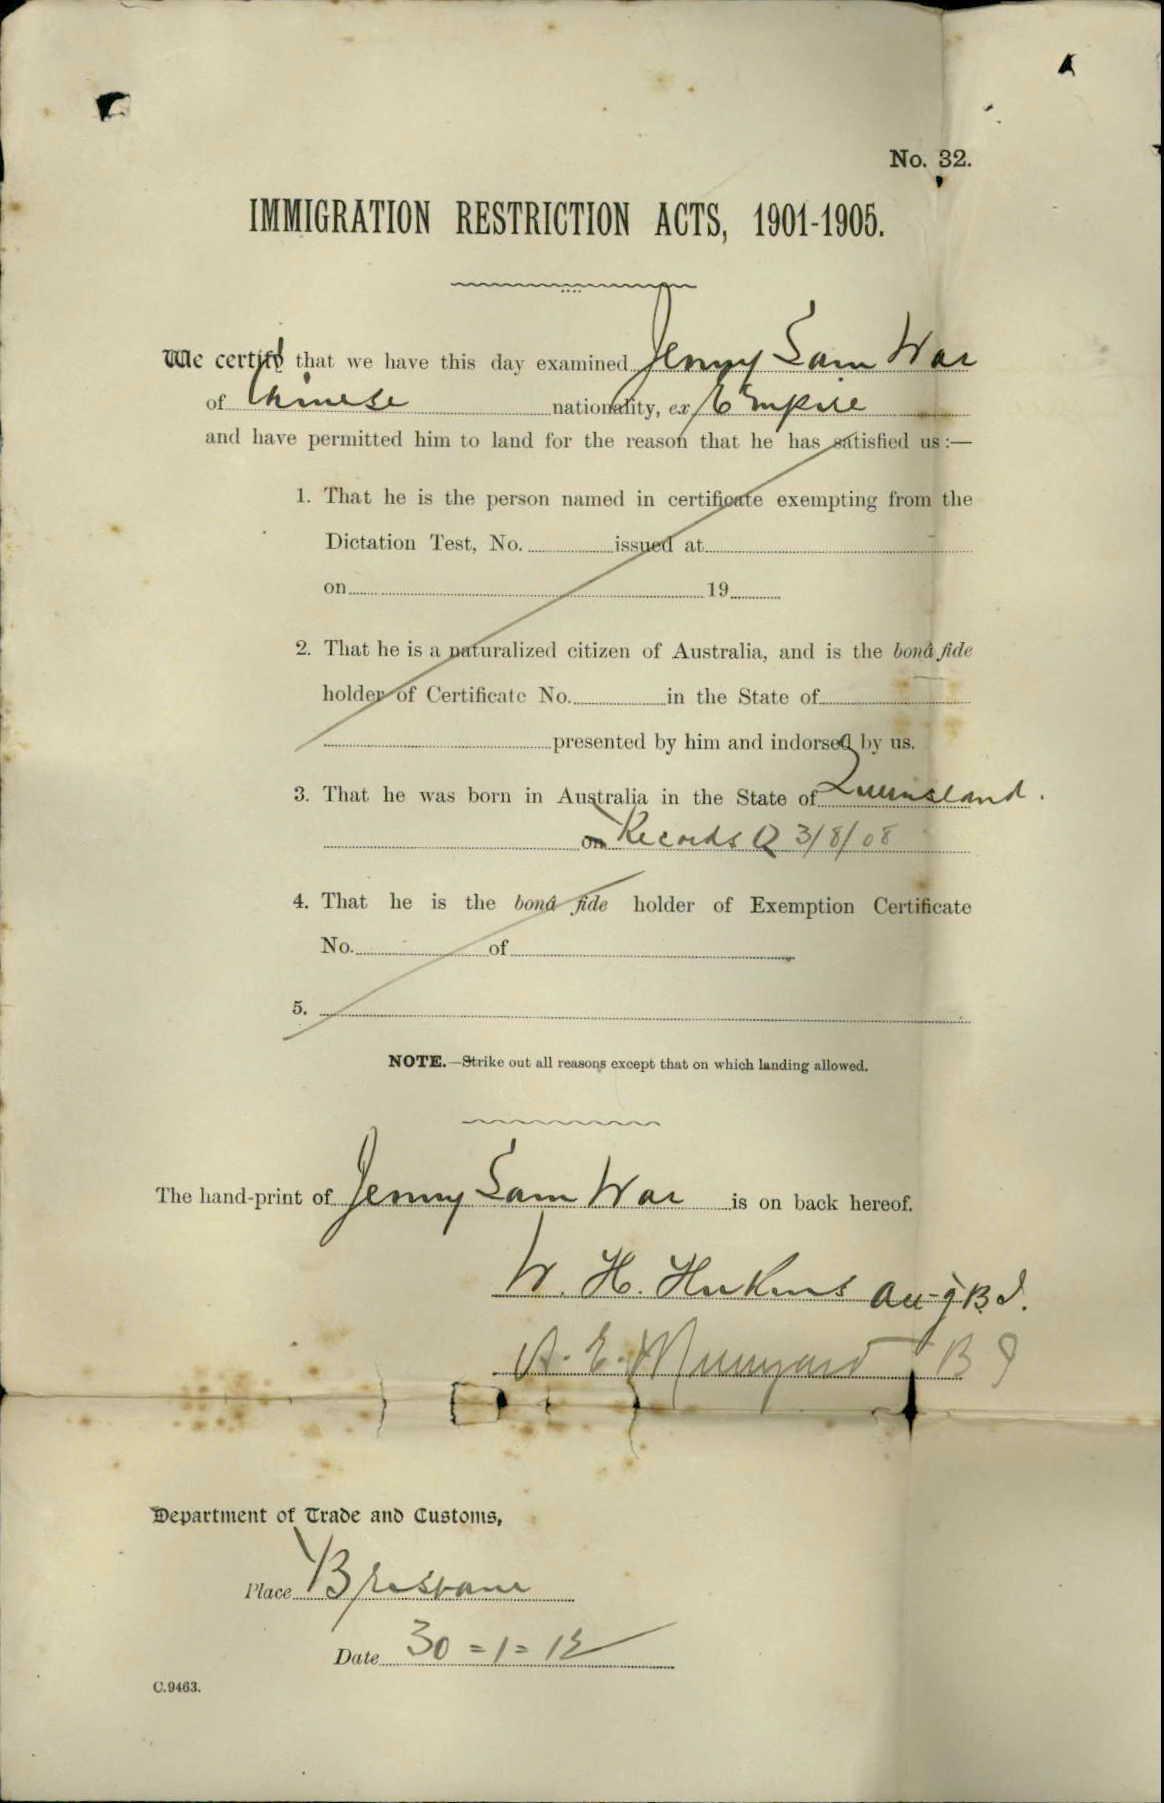 No. 32.
IMMIGRATION RESTRICTION ACTS, 1901-1905.
We certify that we have this day examined Jenny Sam War
of Chinese nationality, ex Empire
and have permitted him to land for the reason that he has satisfied us :—
1. That he is the person named in certificate exempting from the
Dictation Test, No. issued at
on 19
2. That he is a naturalized citizen of Australia, and is the bonâ fide
holder of Certificate No. in the State of
presented by him and indorsed by us.
3. That he was born in Australia in the State of Queensland.
on Records Q 3/8/08
4. That he is the bonâ fide holder of Exemption Certificate
No. of
5.
NOTE.—Strike out all reasons except that on which landing allowed.
The hand-print of Jenny Sam War is on back hereof.
W. H.
A. E.
Department of Trade and Customs,
Place Brisbane
Date 30=1=12
C.9463.